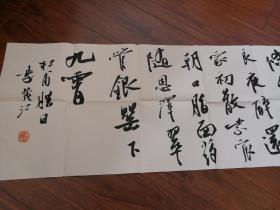 良夜醉還
家初散紫宸
朝口脂面药
随恩澤翠
管銀罌下
九霄
杜甫腊日